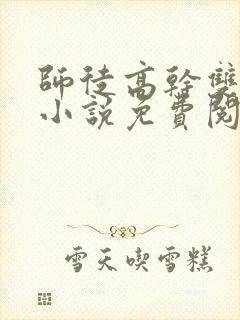 師徒高幹雙
小說免費閱
雪天喫雪糕